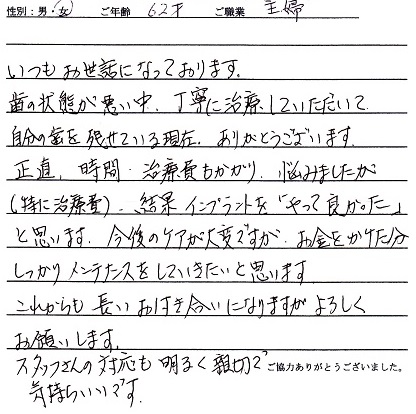 性別：男・女 ご年齢 62才 ご職業 主婦
いつもお世話になっております。
歯の状態が悪い中、丁寧に治療していただいて
自分の歯を残せている現在、ありがとうございます。
正直、時間・治療費もかかり、悩みましたが
(特に治療費)、結果インプラントを「やって良かった」
と思います。今後のケアが大変ですが、お金をかけた分
しっかりメンテナンスをしていきたいと思います
これからも長いお付き合いになりますがよろしく
お願いします。
スタッフさんの対応も明るく親切で
ご協力ありがとうございました。
気持ちいいです。